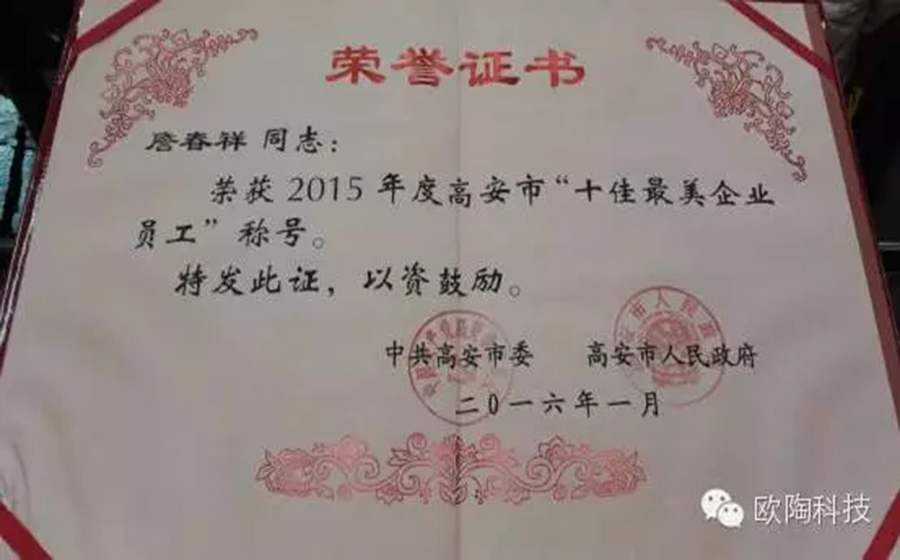 荣誉证书
詹春祥 同志：
荣获 2015 年度高安市“十佳最美企业
员工”称号。
特发此证，以资鼓励。
中共高安市委 高安市人民政府
二〇一六年一月
欧陶科技